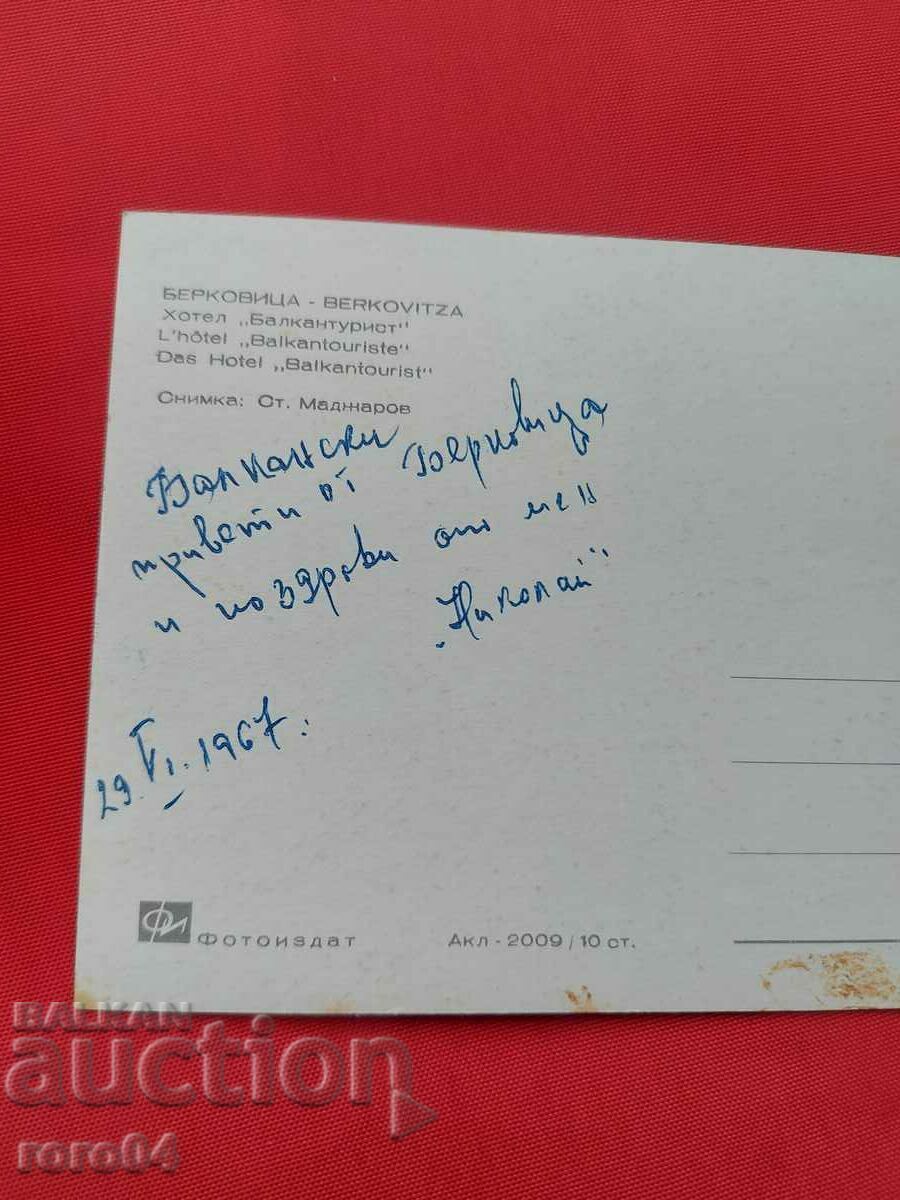 БЕРКОВИЦА - BERKOVITZA
Хотел „Балкантурист"
L'hôtel „Balkantouriste"
Das Hotel „Balkantourist"
Снимка: Ст. Маджаров
Балкански
привети от Берковица
и поздрави от мен
„Николай"
29. VI. 1967.
ФИ Фотоиздат
Акл - 2009 / 10 ст.
BALKAN
auction
roro04